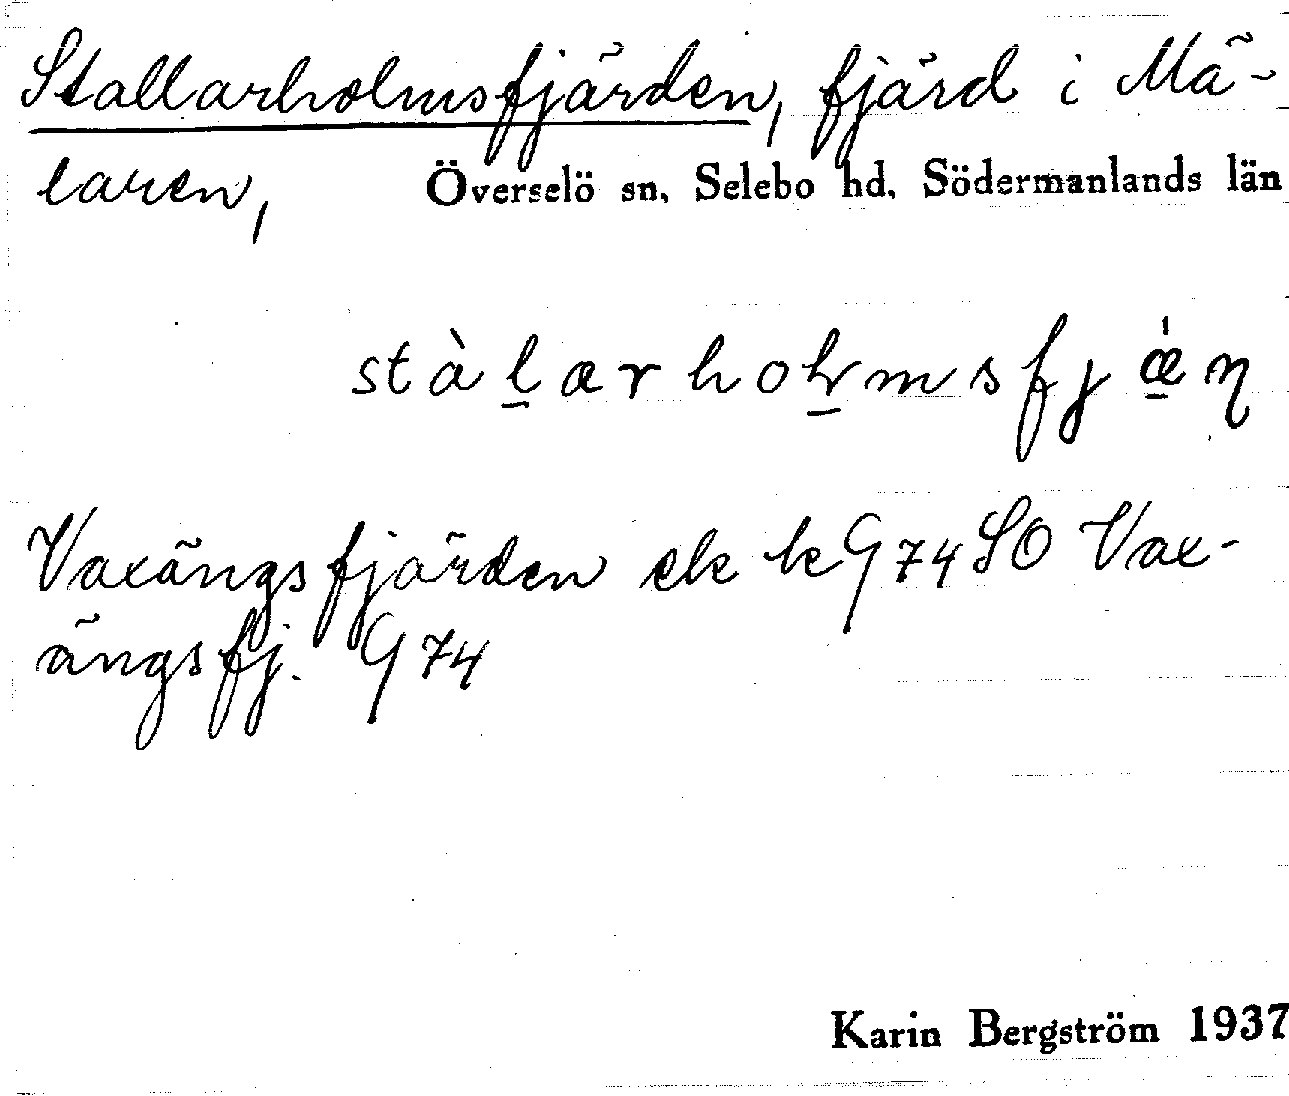 Stallarholmsfjärden, fjärd i Mä-
laren, Överselö sn, Selebo hd, Södermanlands län
stàl̠ærhoɬ̠msfjæ̠̍ɳ
Vaxängsfjärden ek bl G 74 SO Vax-
ängsfj. G 74
Karin Bergström 1937